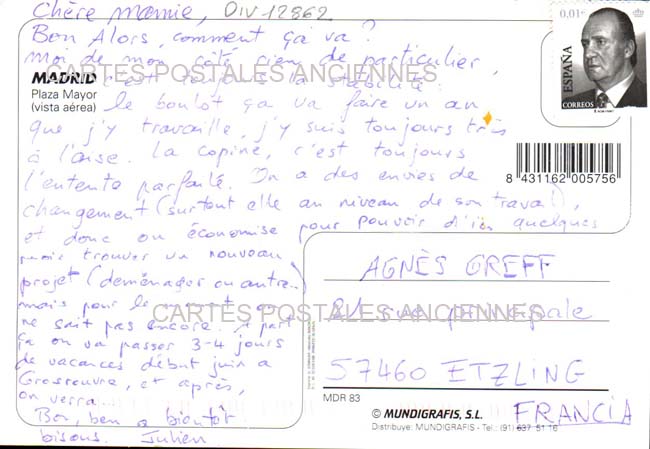 Chère mamie, DIV 12862
Bon Alors, comment ça va?
Moi de mon côté rien de particulier,
c'est toujours la stabilité.
le boulot ça va faire un an
que j'y travaille, j'y suis toujours très
à l'aise. La copine, c'est toujours
l'entente parfaite. On a des envies de
changement (surtout elle au niveau de son travail),
et donc on économise pour pouvoir d'ici quelques
mois trouver un nouveau
projet (déménager ou autre..)
mais pour le moment on
ne sait pas encore. A part
ça on va passer 3-4 jours
de vacances début juin à
Grosrouvre, et après,
on verra...
Bon, ben à bientôt
bisous. Julien
MADRID
Plaza Mayor
(vista aérea)
CARTES POSTALES ANCIENNES
0,01€
ESPAÑA
CORREOS
8 431162 005756
AGNÈS GREFF
21 rue principale
57460 ETZLING
FRANCIA
CARTES POSTALES ANCIENNES
MDR 83
© MUNDIGRAFIS, S.L.
Distribuye: MUNDIGRAFIS - Tel.: (91) 637 51 16